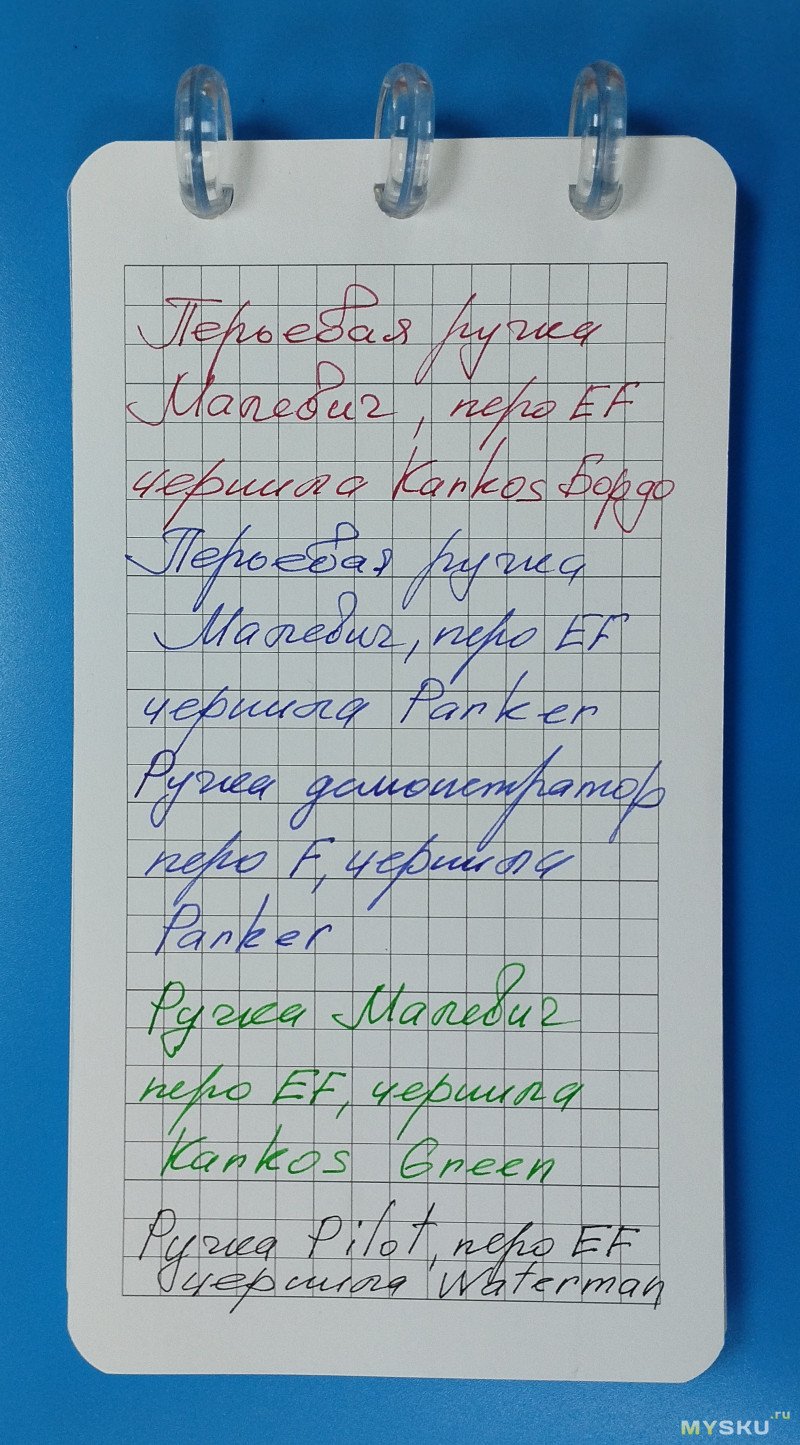 Перьевая ручка
Малевич, перо EF
чернила Kankos Бордо
Перьевая ручка
Малевич, перо EF
чернила Parker
Ручка демонстратор
перо F, чернила
Parker
Ручка Малевич
перо EF, чернила
Kankos Green
Ручка Pilot, перо EF
чернила Waterman
MYSKU.ru